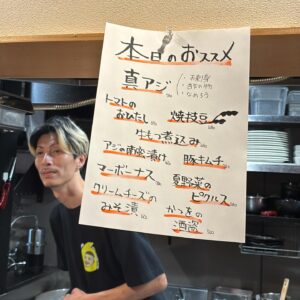 本日のおススメ
真アジ
・お刺身
・なめろう
トマトの
おひたし
焼枝豆
牛もつ煮込み
アジの南蛮漬け
豚キムチ
マーボーナス
夏野菜の
ピクルス
クリームチーズの
みそ漬
かつをの
酒盗